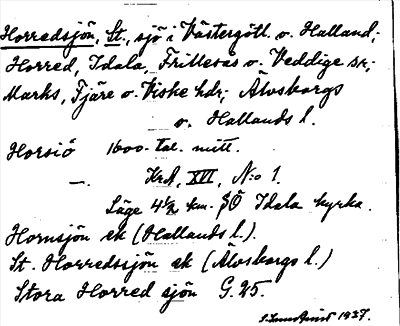 Horredsjön, St., sjö i Västergötl. o. Halland;
Horred, Idala, Frillesås o. Veddige sk;
Marks, Fjäre o. Viske hdr; Älvsborgs
o. Hallands l.
Horsiö 1600-tal. mitt.
—. KrA, XVI, N:o 1.
Läge 4½ km. SÖ Idala kyrka.
Hornsjön ek (Hallands l.)
St. Horredssjön ek (Älvsborgs l.)
Stora Horred sjön G. 25.
1937.